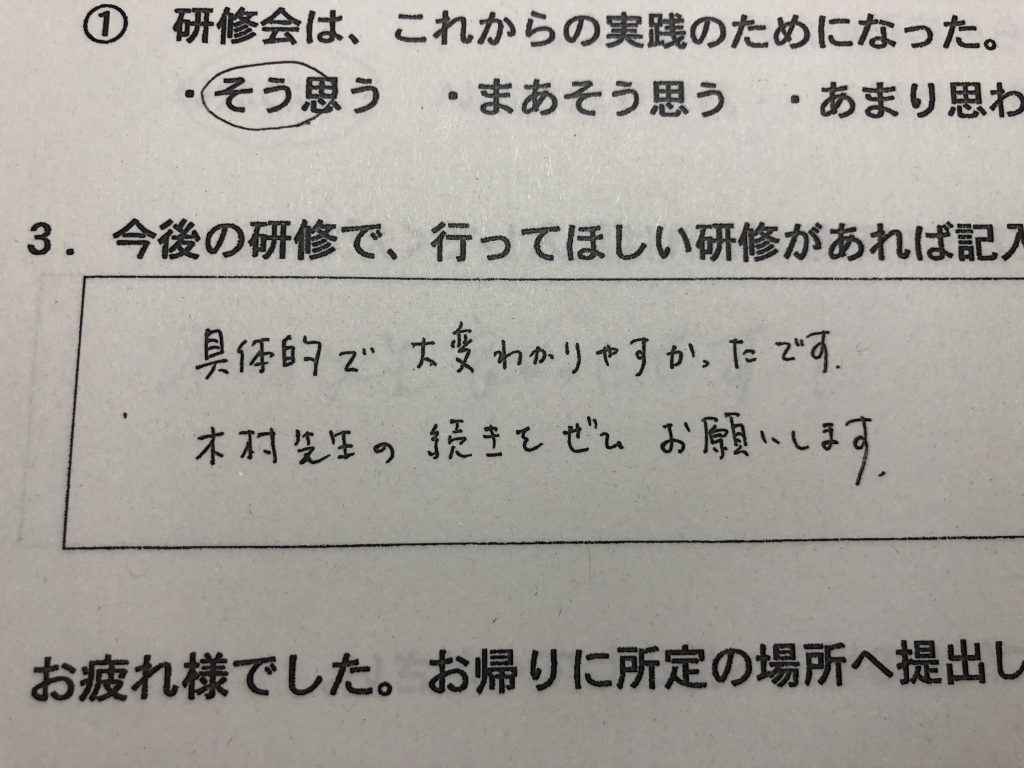 ① 研修会は、これからの実践のためになった。
・そう思う ・まあそう思う ・あまり思わ
3． 今後の研修で、行ってほしい研修があれば記入
具体的で 大変わかりやすかったです.
木村先生の 続きを ぜひ お願いします.
お疲れ様でした。お帰りに所定の場所へ提出し